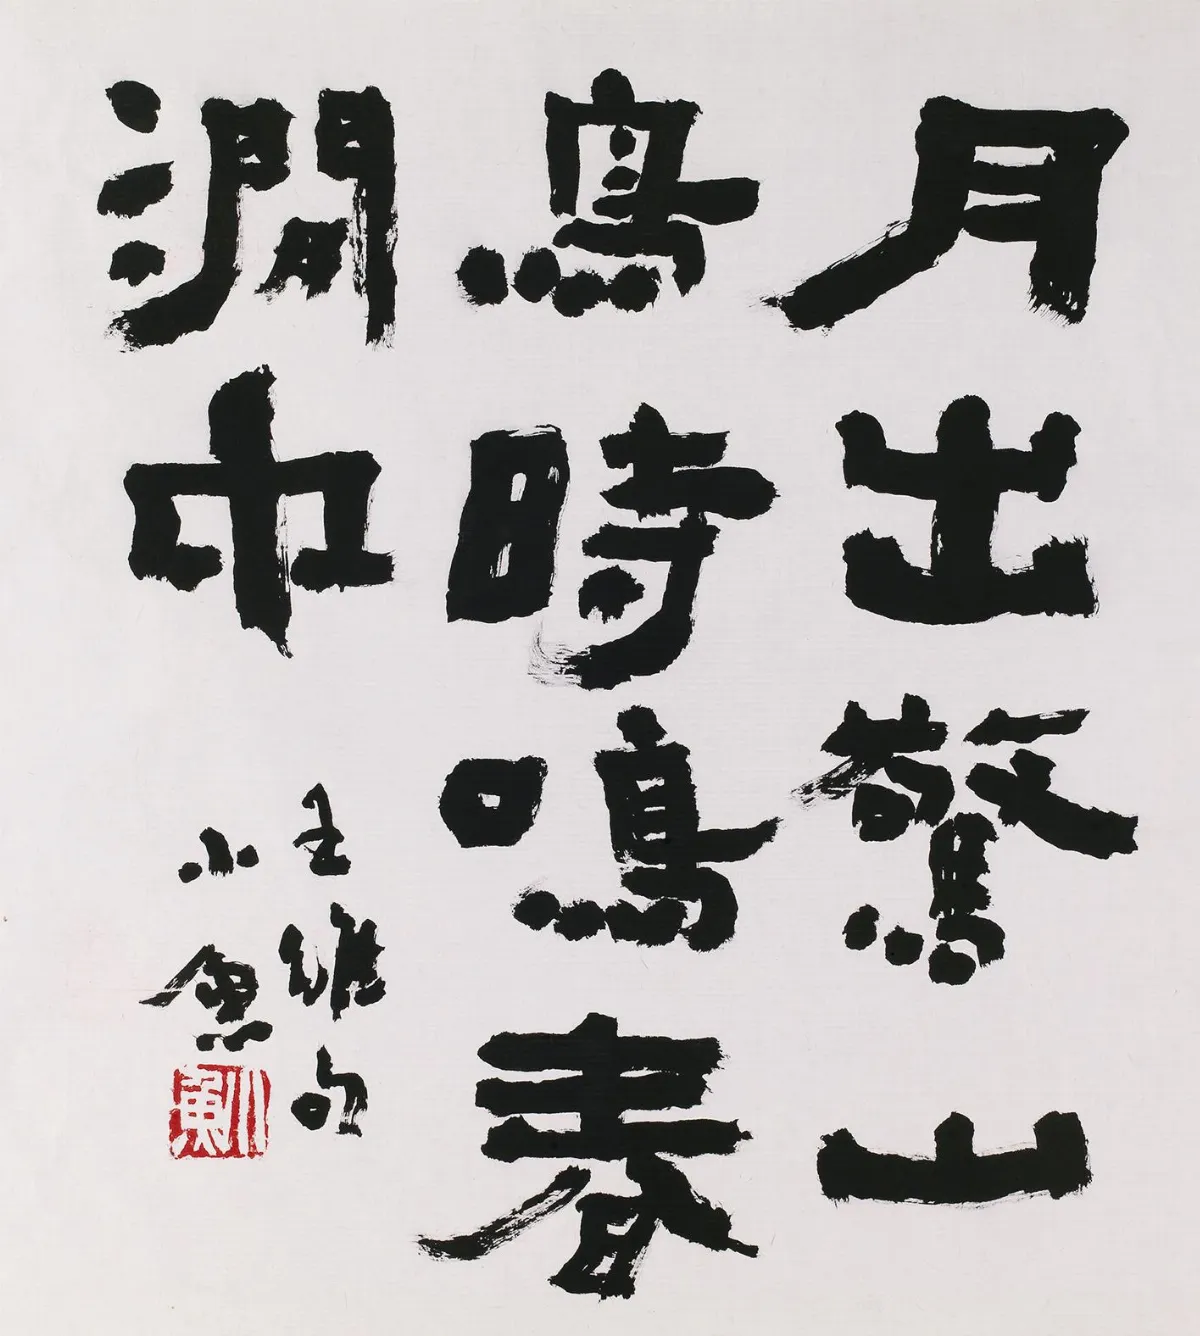 月出驚山
鳥時鳴春
澗中
王維句
小魚
小魚